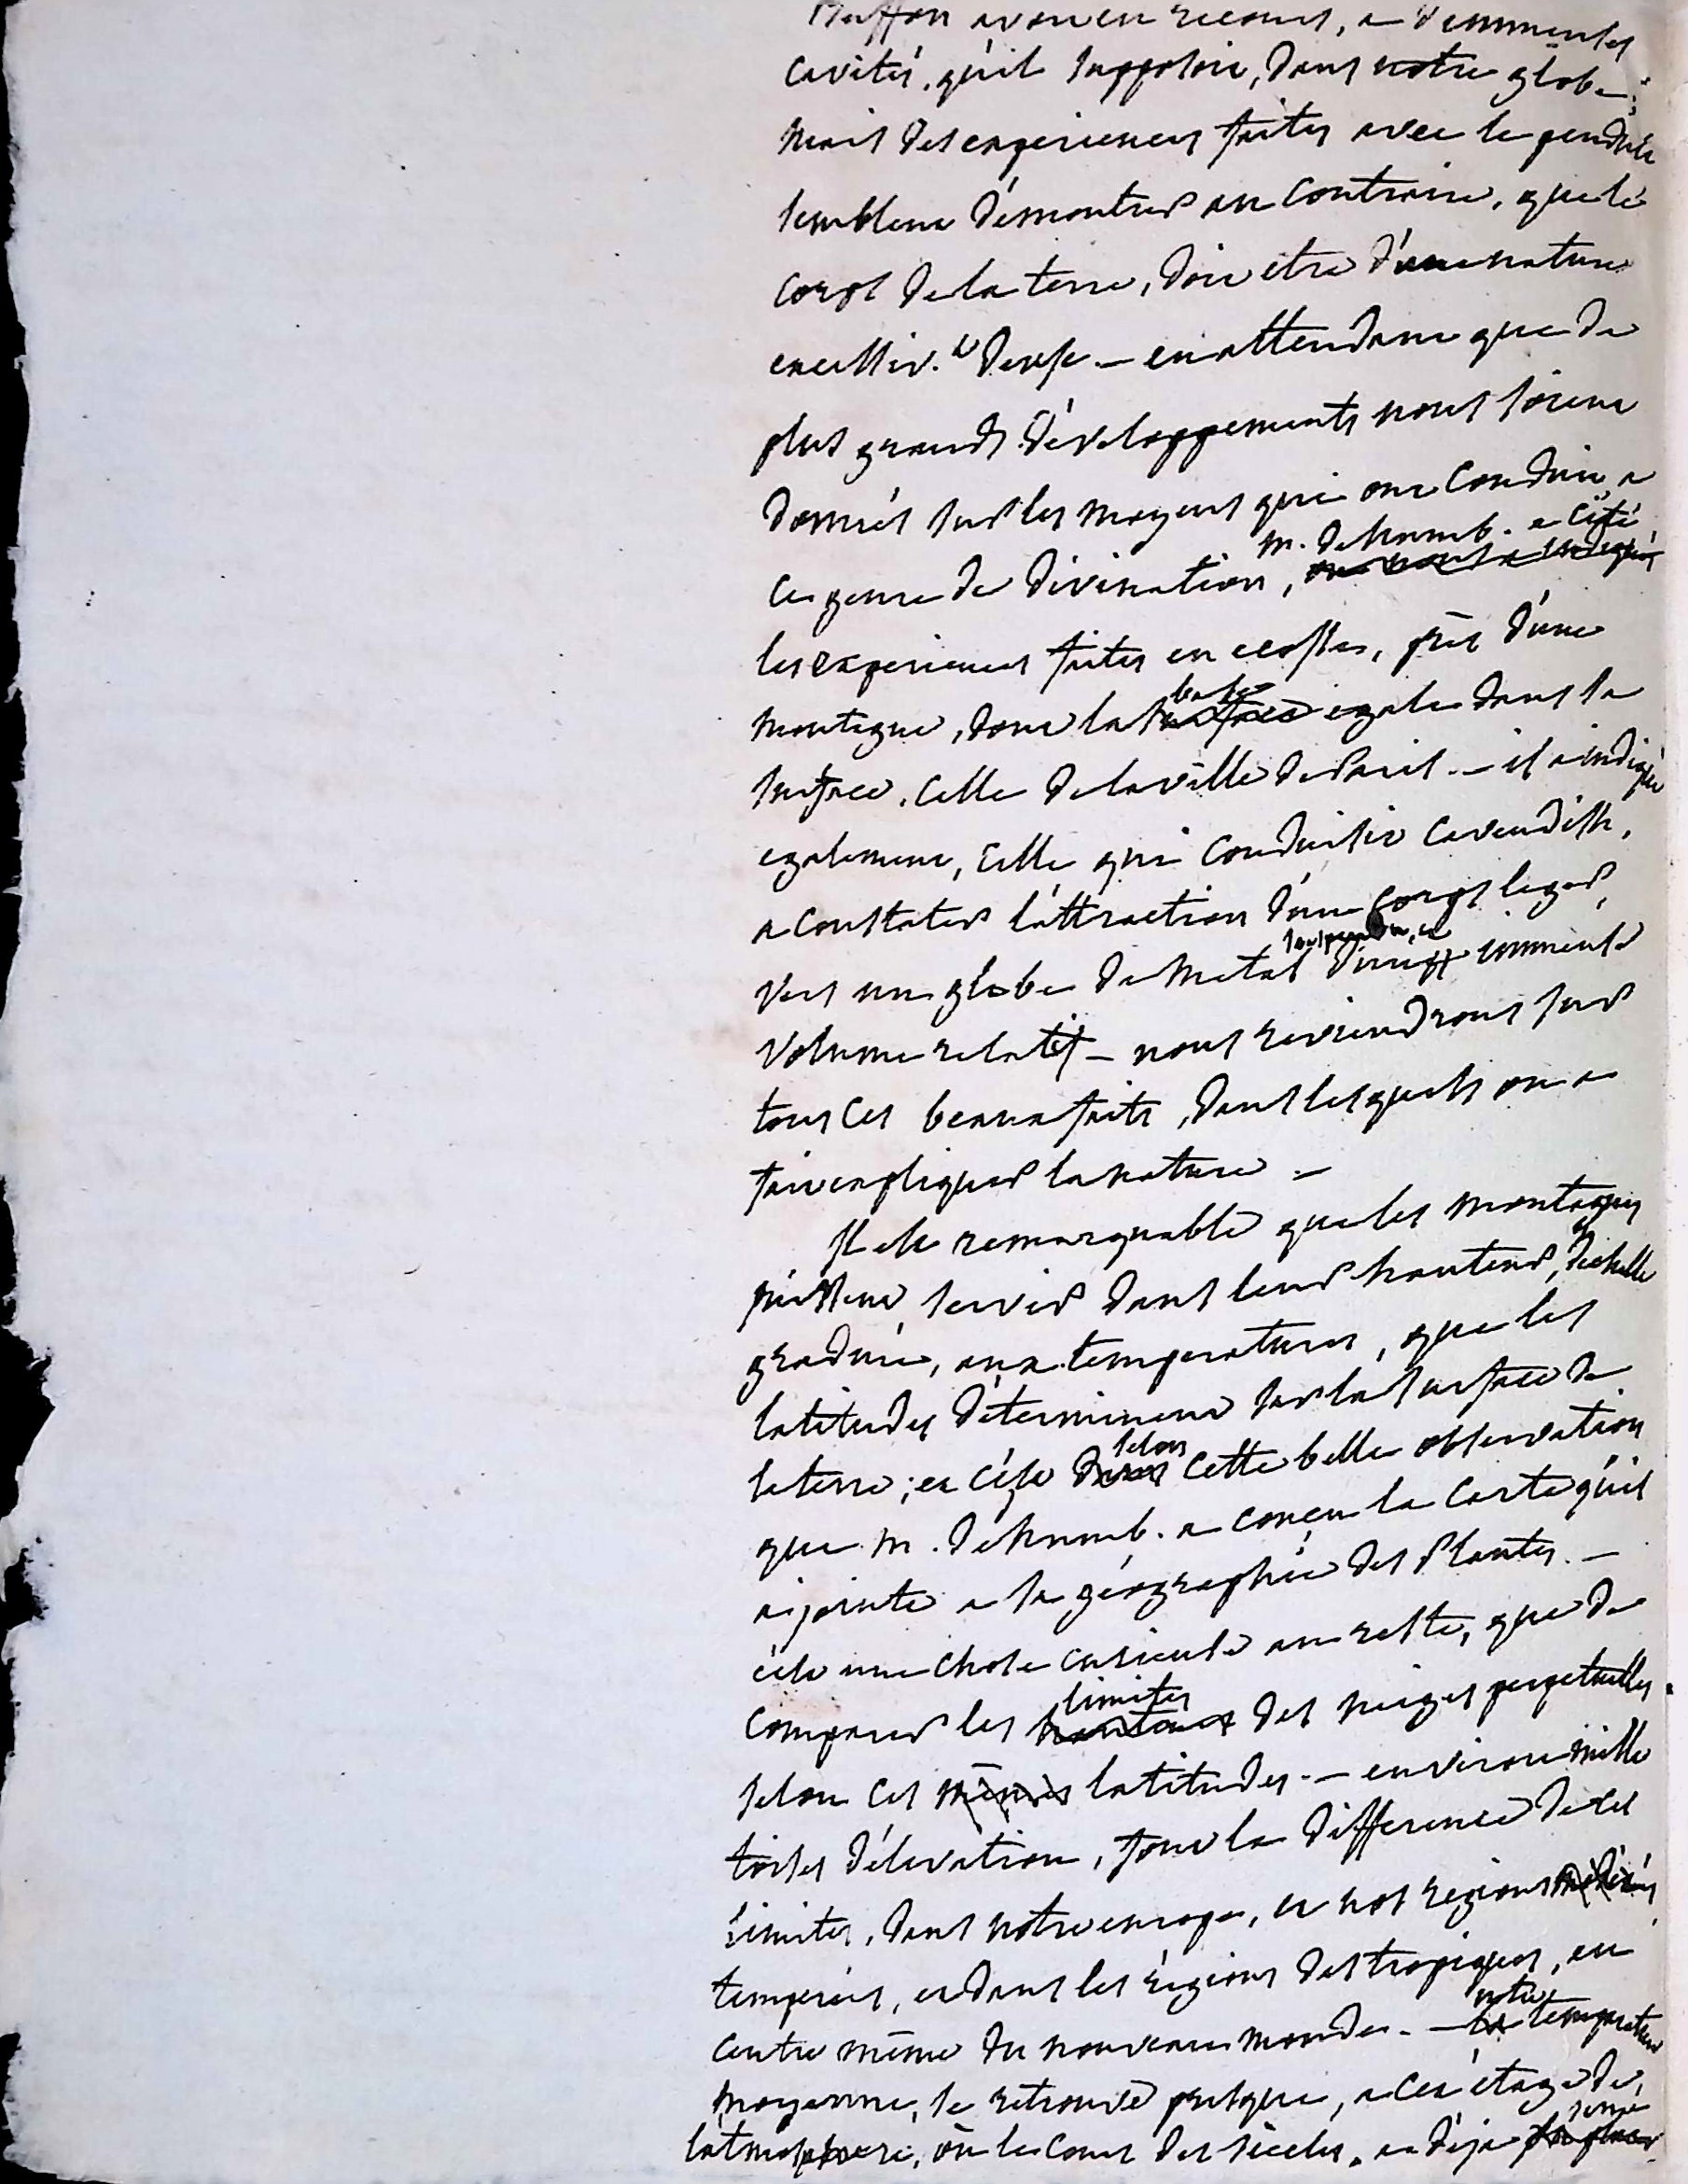 Buffon avoit eu recours, a d'immenses
cavités, qu'il supposoit, dans notre globe;
mais des experiences faites avec le pendule
semblent démontrer au contraire, que le
corps de la terre, doit etre d'une nature
excessiv.t dense — en attendant que de
plus grands développements nous soient
donnés sur les moyens qui ont conduit a
m. de humb. a cité
ce genre de divination,
les experiences faites en ecosse, près d'une
base
montagne, dont la egale dans sa
surface, celle de la ville de Paris. — il a indiqué
egalement, celle qui conduisit Cavendish,
a constater l'attraction d'un corps leger,
suspendu, et
vers un globe de metal d'un immense
volume relatif — nous reviendrons sur
tous ces beaux faits, dans lesquels on a
fait expliquer la nature —
Il est remarquable que les montagnes
puissent, servir dans leur hauteur, d'echelle
graduée, aux temperatures, que les
latitudes déterminent sur la surface de
selon
la terre; et c'est dans cette belle observation
que m. de humb. a conçu la carte qu'il
a jointe a sa géographie des Plantes. —
c'est une chose curieuse au reste, que de
limites
comparer les hauteurs des neiges perpetuelles
selon ces mêmes latitudes. — environ mille
toises d'élevation, font la difference de ces
limites, dans notre europe, et nos regions
temperées, et dans les régions des tropiques, au
notre
centre même du nouveau monde. — la temperature
moyenne, se retrouve presque, a cet étage de
l'atmosphere, où le cours des siecles, a déja